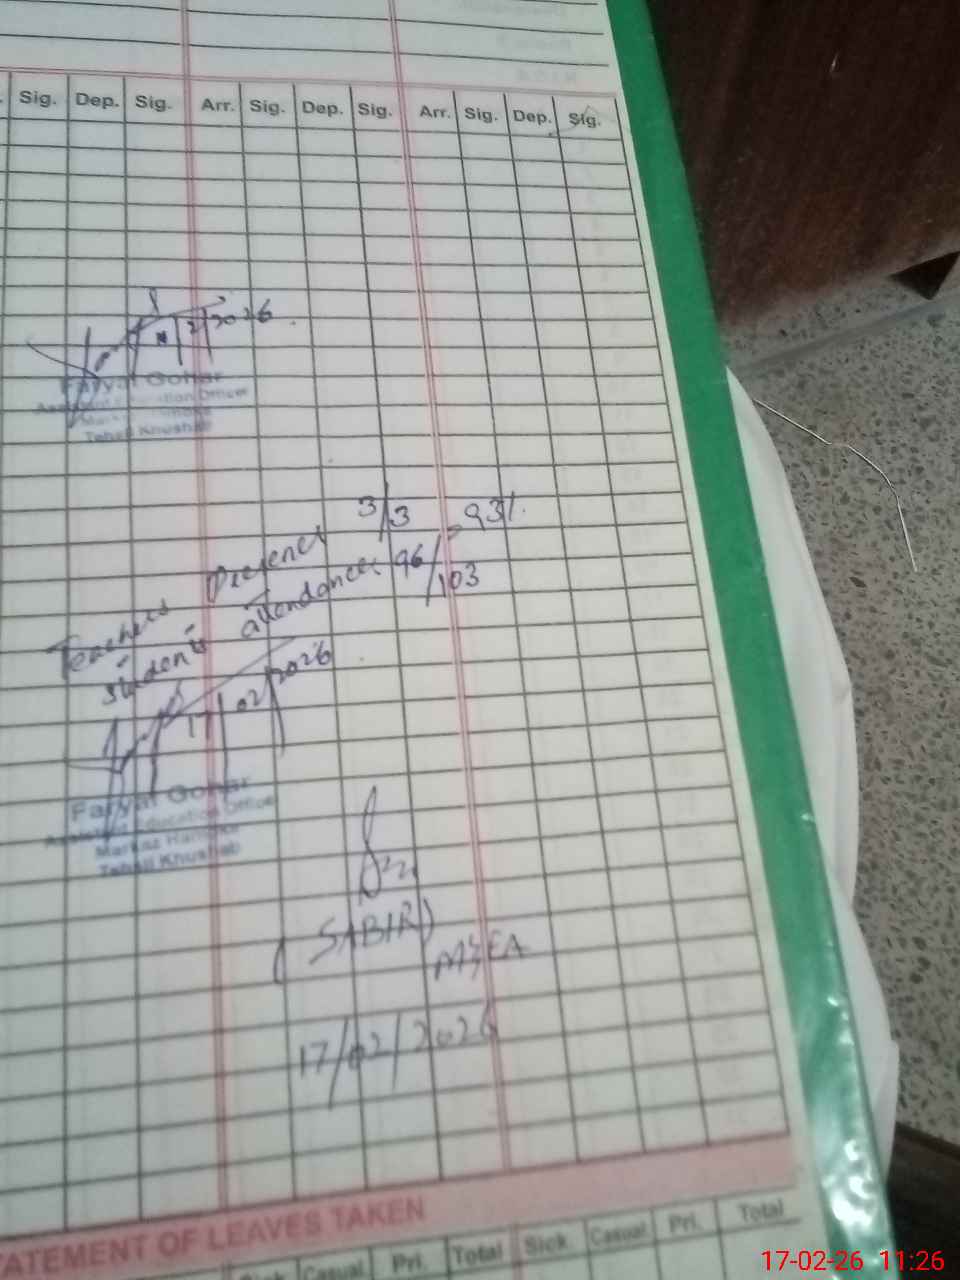 Sig. Dep. Sig. Arr. Sig. Dep. Sig. Arr. Sig. Dep. Sig.
/2/2026
Faryal Gohar
Tehsil Khushab
Teachers Present 3/3
Students attendance: 96/103 = 93%
17/02/2026
Faryal Gohar
Assistant Education Office
Markaz
Tehsil Khushab
(SABIR)
MEA
17/02/2026
STATEMENT OF LEAVES TAKEN
Sick Casual Pri. Total Sick Casual Pri. Total
17-02-26 11:26